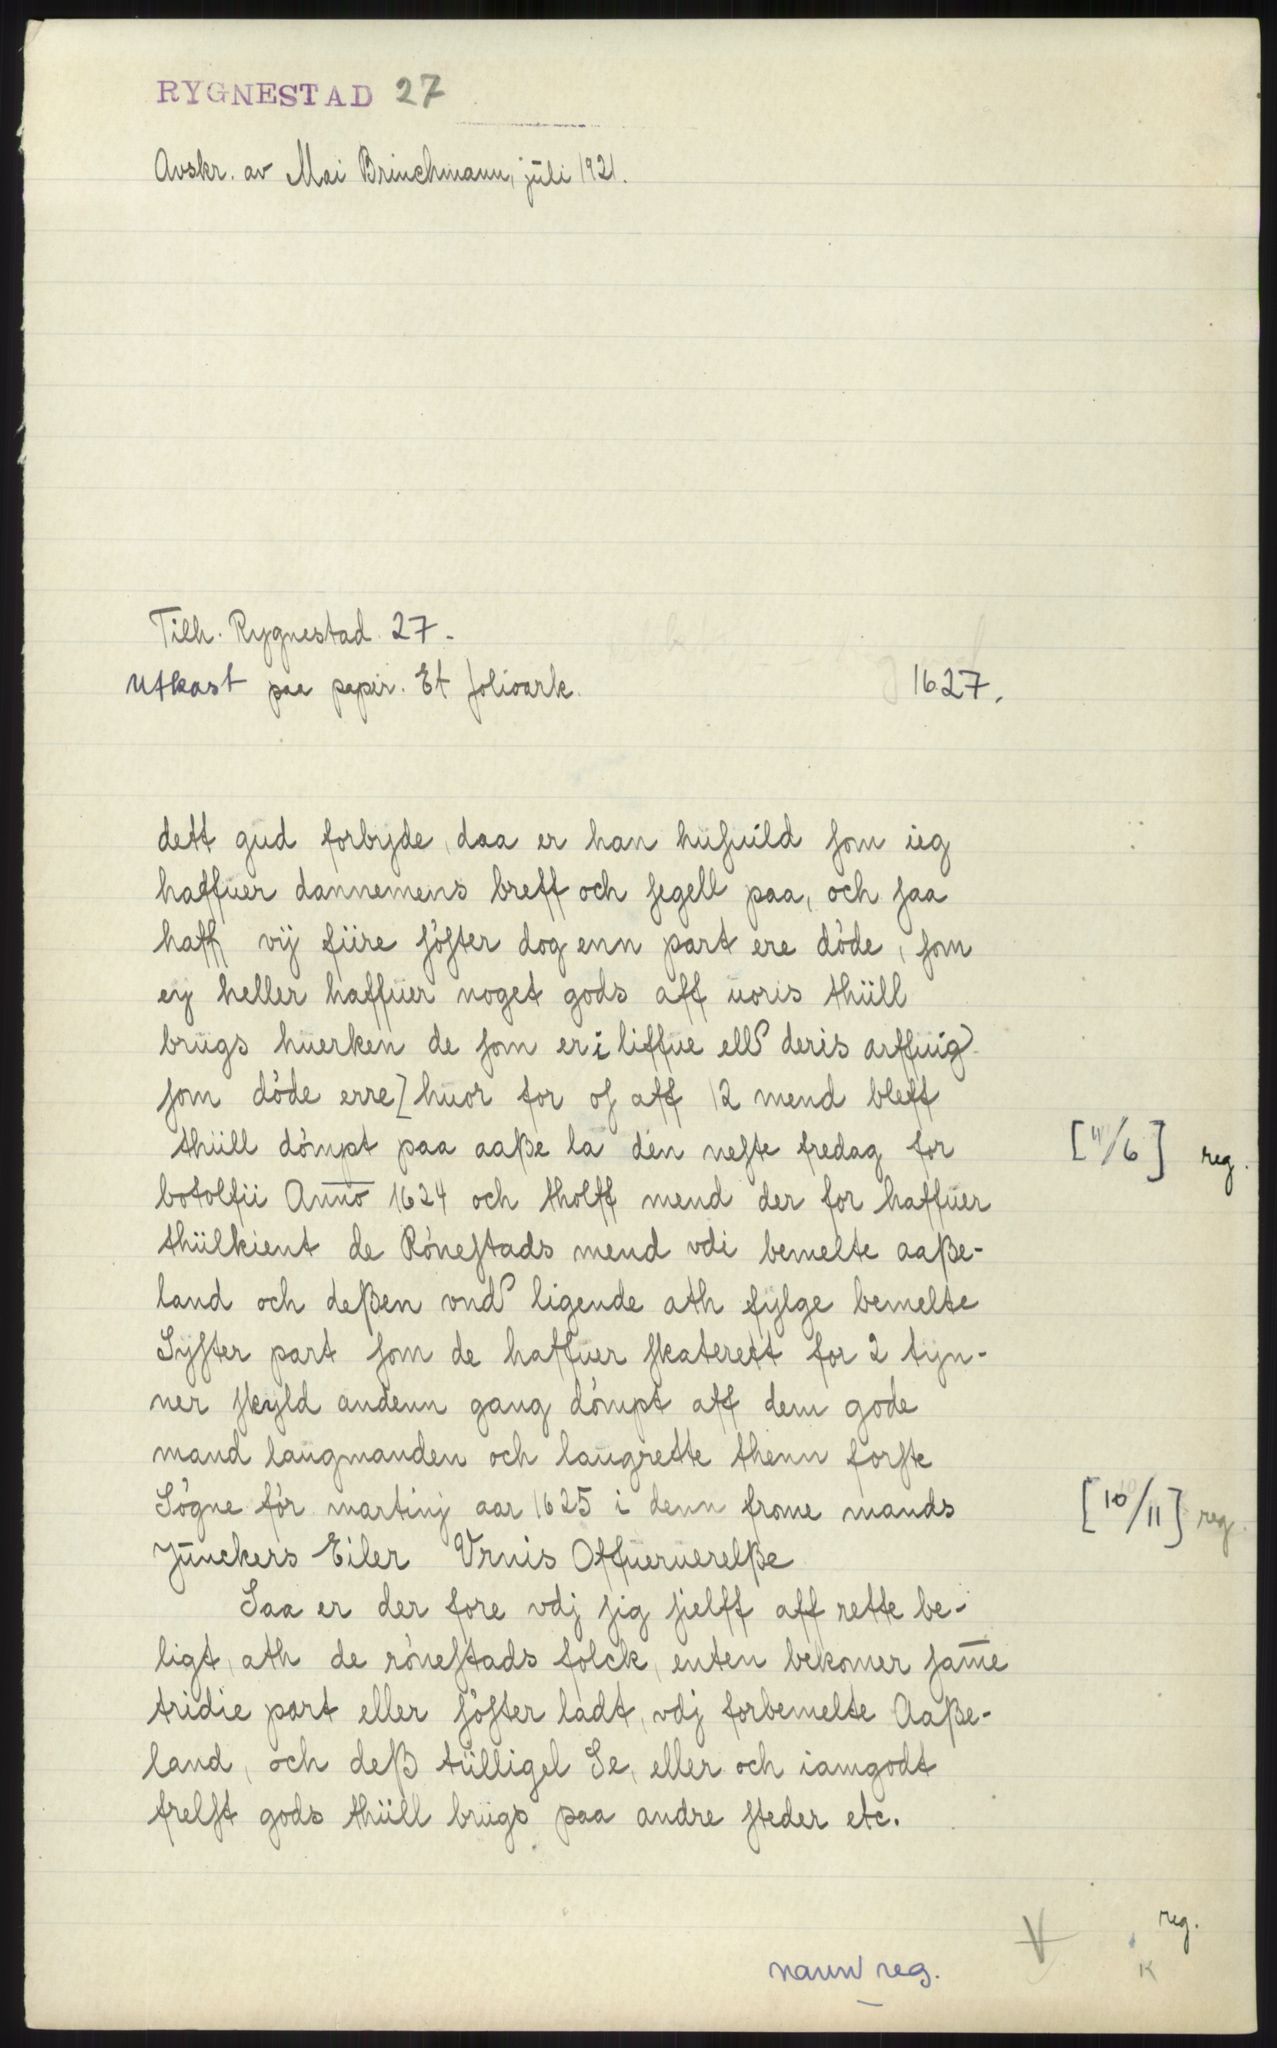 RYGNESTAD 27
Avskr. av Mai Brinchmann, juli 1921.
Tilh. Rygnestad 27.
Utkast paa papir. Et folioark.
1627.
dett gud forbyde, daa er han husuild som ieg
haffuer dannemens breff och segell paa, och saa
haff vij fiire söster dog enn part ere döde, som
eij heller haffuer noget gods aff uoris thüll
brugs huerken de som er i liffue ell deris arffuig
som döde erre] huor for os aff 12 mend bleff
thüll dömpt paa aaße la den neste fredag for
botolfii Anno 1624 och tholff mend der for haffuer
thülkient de Rönestads mend vdi bemelte aaße-
land och deßen vnd ligende ath fylge bemelte
Syster part som de haffuer skaterett for 2 tyn-
ner skyld andenn gang dömpt aff dem gode
mand laugmanden och laugrette thenn forste
Sögne för martinij aar 1625 i denn frome mands
Junckers Eiler Vrnis Offueruerelße
Saa er der fore vdj sig sielff aff rette be-
ligt, ath de rönestads folck, enten bekomer same
tridie part eller söster ladt, vdj forbemelte Aaße-
land, och deß tülligel Se, eller och iamgodt
frelst gods thüll brugs paa andre steder etc.
[11/6] reg.
[10/11] reg.
V
reg.
K
navn reg.